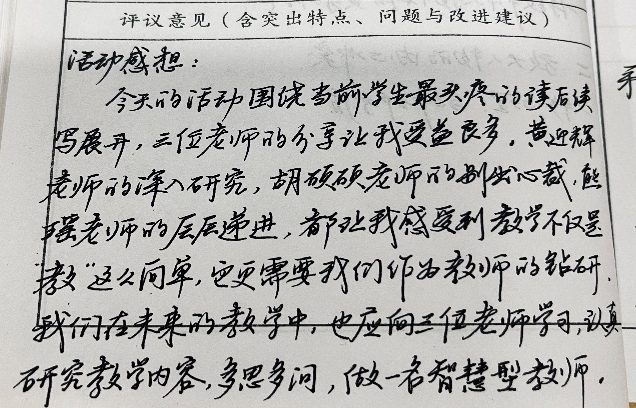 评议意见（含突出特点、问题与改进建议）
活动感想：
今天的活动围绕当前学生最头疼的读后续
写展开，三位老师的分享让我受益良多。黄迎辉
老师的深入研究，胡硕硕老师的别出心裁，熊
瑶老师的层层递进，都让我感受到教学不仅是
“教”这么简单，它更需要我们作为教师的钻研。
我们在未来的教学中，也应向三位老师学习，认真
研究教学内容，多思多问，做一名智慧型教师。